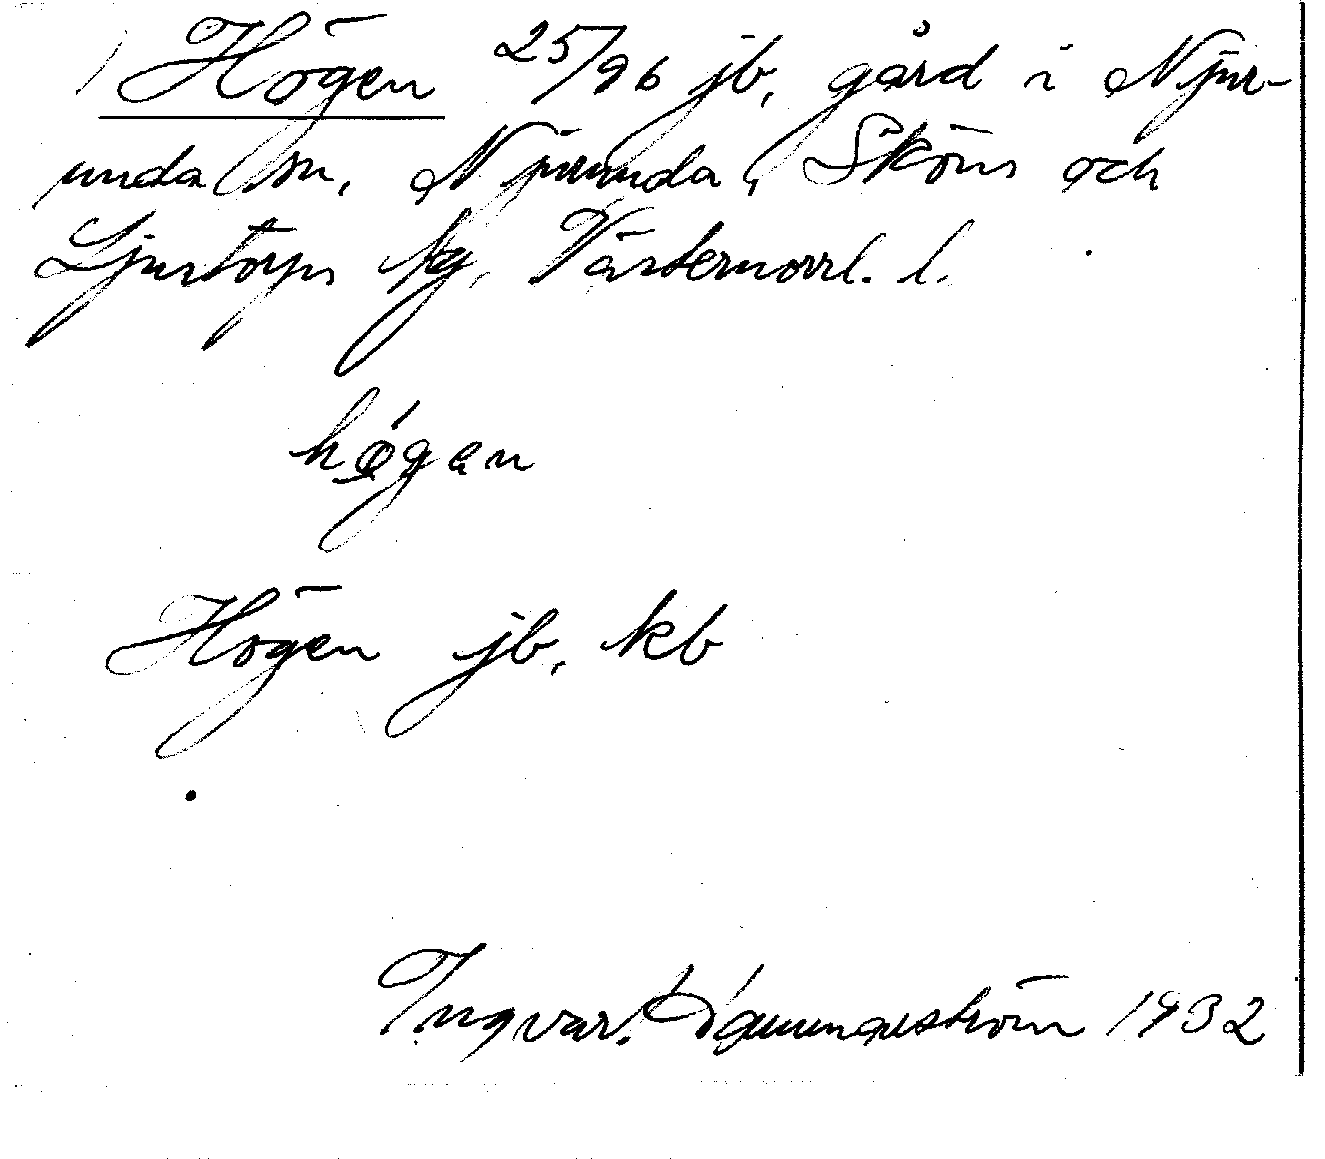 Högen 25/96 jb, gård i Njur-
unda sn, Njurunda, Sköns och
Ljustorps tg, Västernorrl. l.
hǿ̨gan
Högen jb, kb
Ingvar 1932